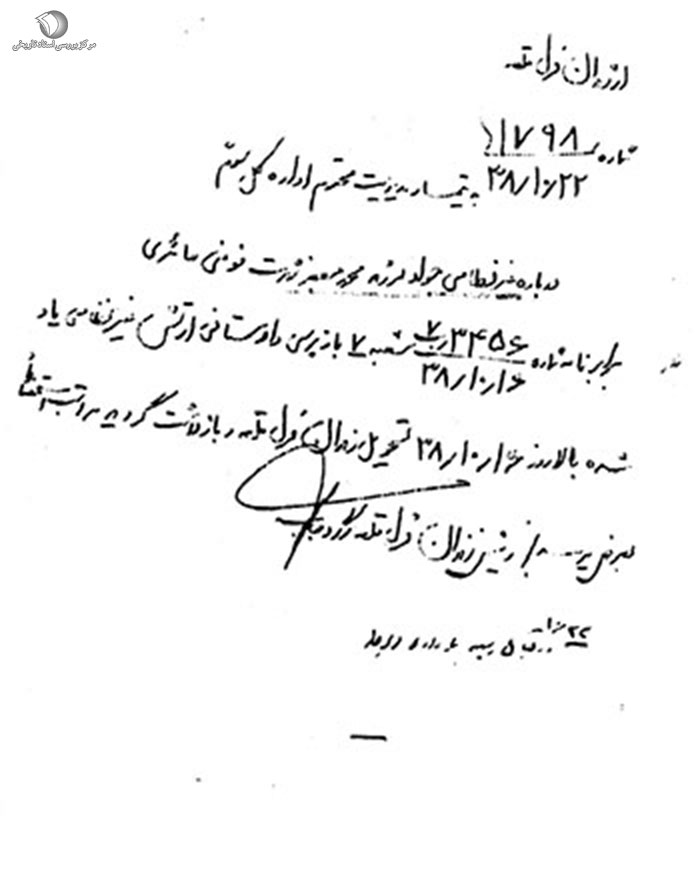 مرکز بررسی اسناد تاریخی
از زندان قزل قلعه
شماره ۱۱۷۹۸
۳۸/۱۰/۲۲
به تیمسار مدیریت محترم اداره کل سوم
درباره غیرنظامی جواد فرزند محمد جعفر شهرت فومنی حائری
برابر نامه شماره ۳۴۵۶ شعبه ۷ بازپرسی دادستانی ارتش غیرنظامی یاد
۳۸/۱۰/۶
شده بالا روز ۳۸/۱۰/۶ تحویل زندان قزل قلعه و بازداشت گردید مراتب استحضاراً
بعرض میرسد رئیس زندان قزل قلعه